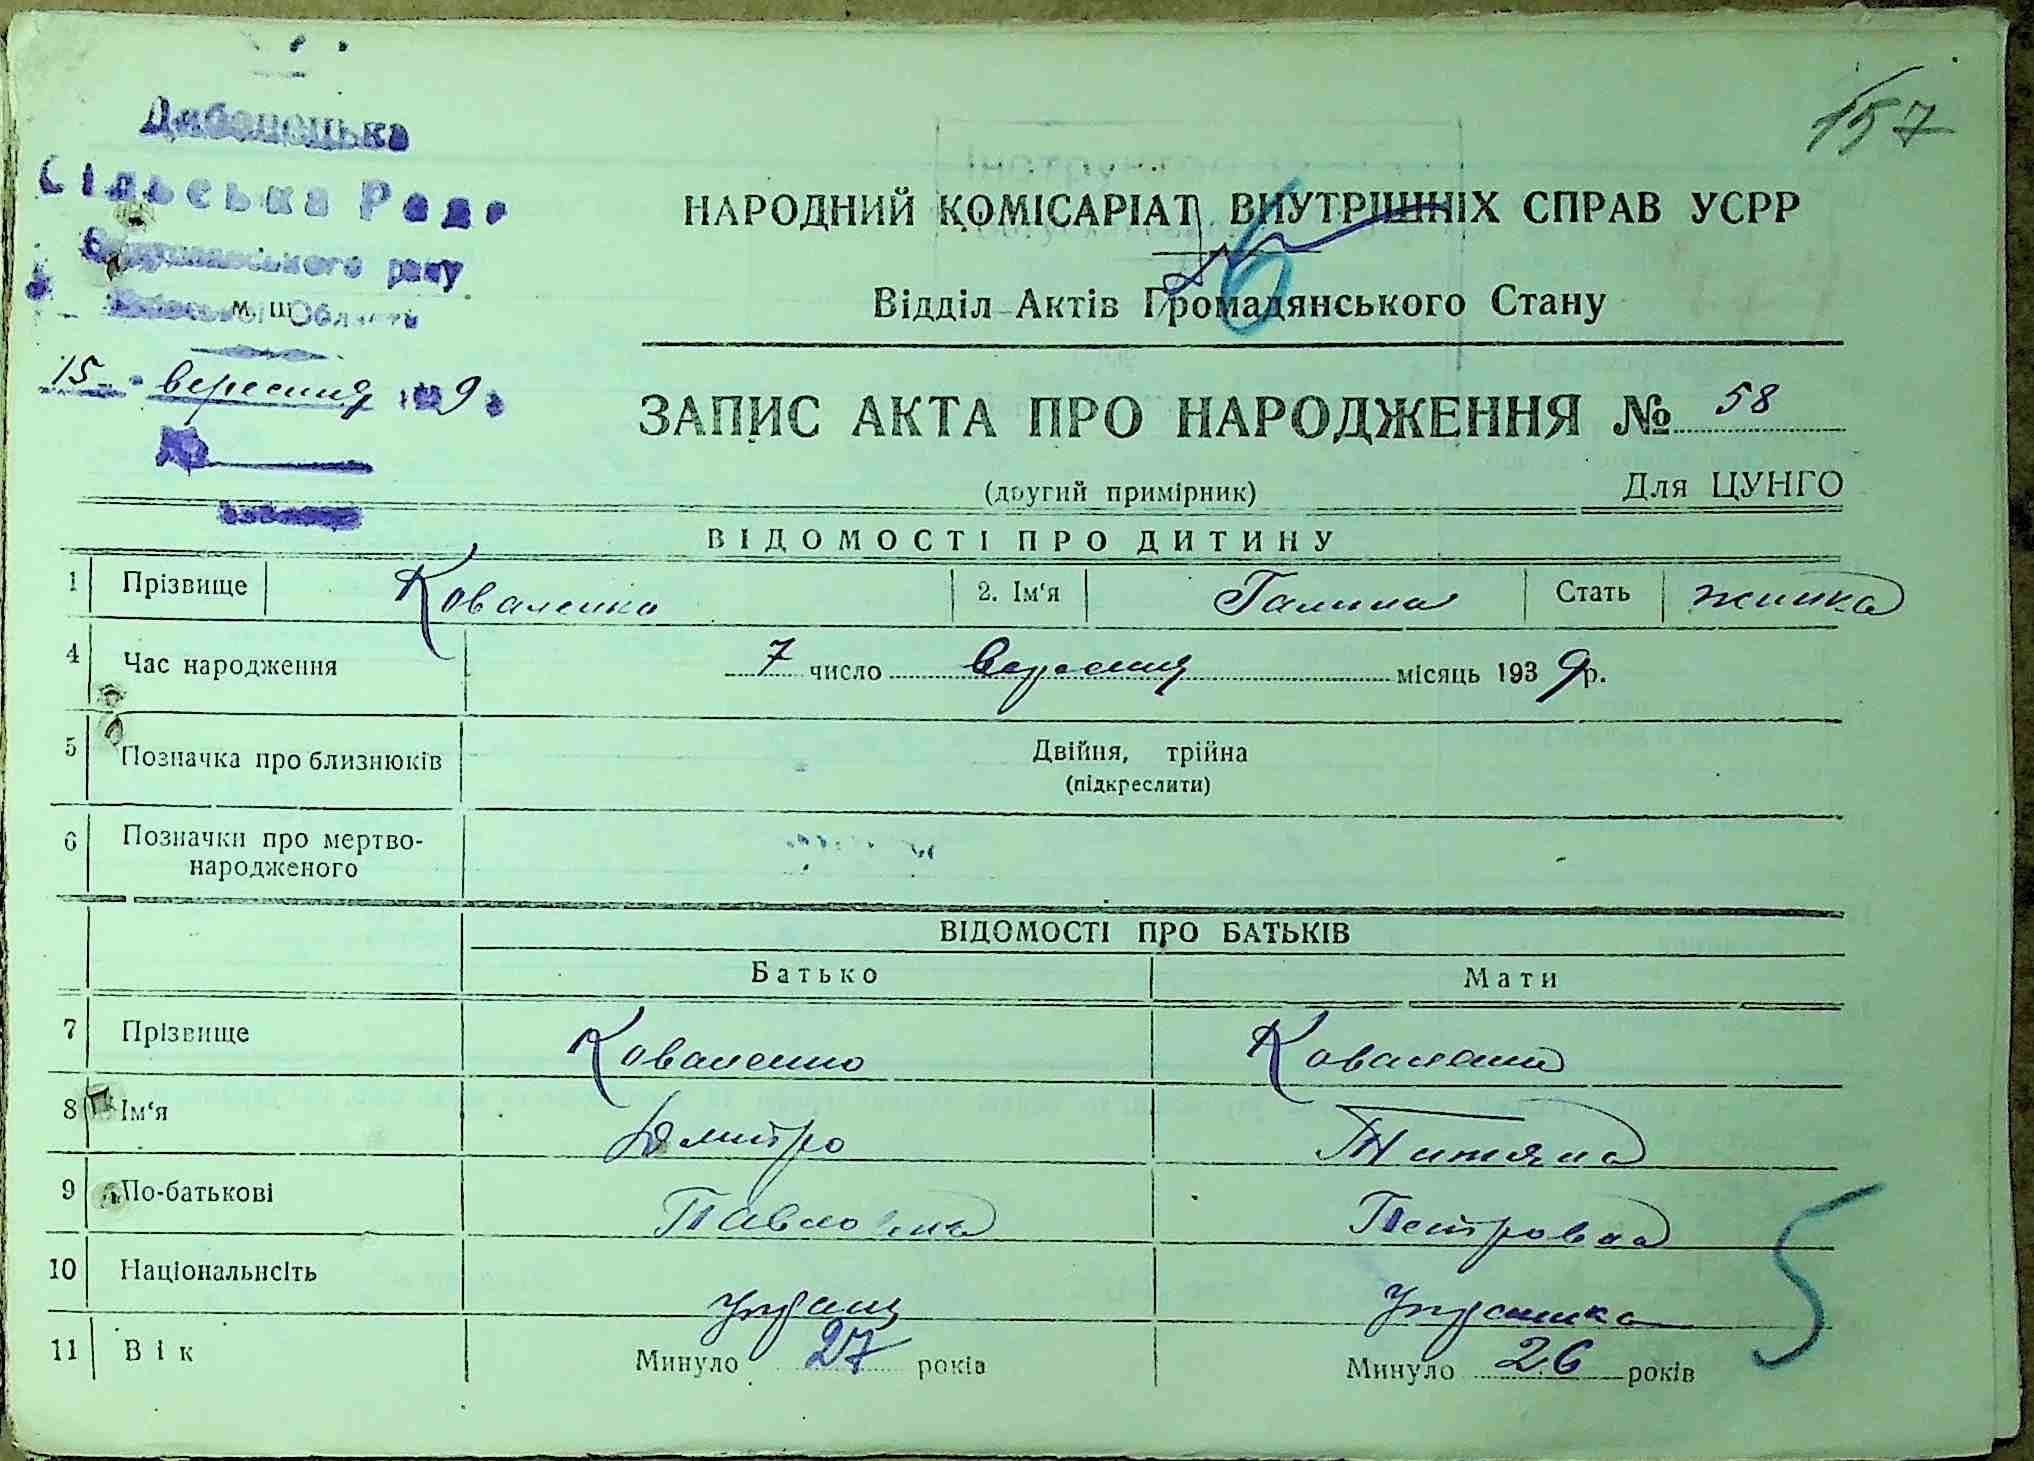 157
Дибенецька
Сільська Рада
Богуславського рану
Київської Області
м. ш
15 вересня 1939
НАРОДНИЙ КОМІСАРІАТ ВНУТРІШНІХ СПРАВ УСРР
6
Відділ Актів Громадянського Стану
ЗАПИС АКТА ПРО НАРОДЖЕННЯ № 58
(другий примірник) Для ЦУНГО
ВІДОМОСТІ ПРО ДИТИНУ
1 Прізвище Коваленко 2. Ім'я Галина Стать жинка
4 Час народження 7 число вересня місяць 1939 р.
5 Позначка про близнюків Двійня, трійна
(підкреслити)
6 Позначки про мертво-
народженого
ВІДОМОСТІ ПРО БАТЬКІВ
Батько Мати
7 Прізвище Коваленко Коваленко
8 Ім'я Дмитро Титяна
9 По-батькові Павловна Петровна
10 Національнсіть Украінц Украінка
11 Вік Минуло 27 років Минуло 26 років
5